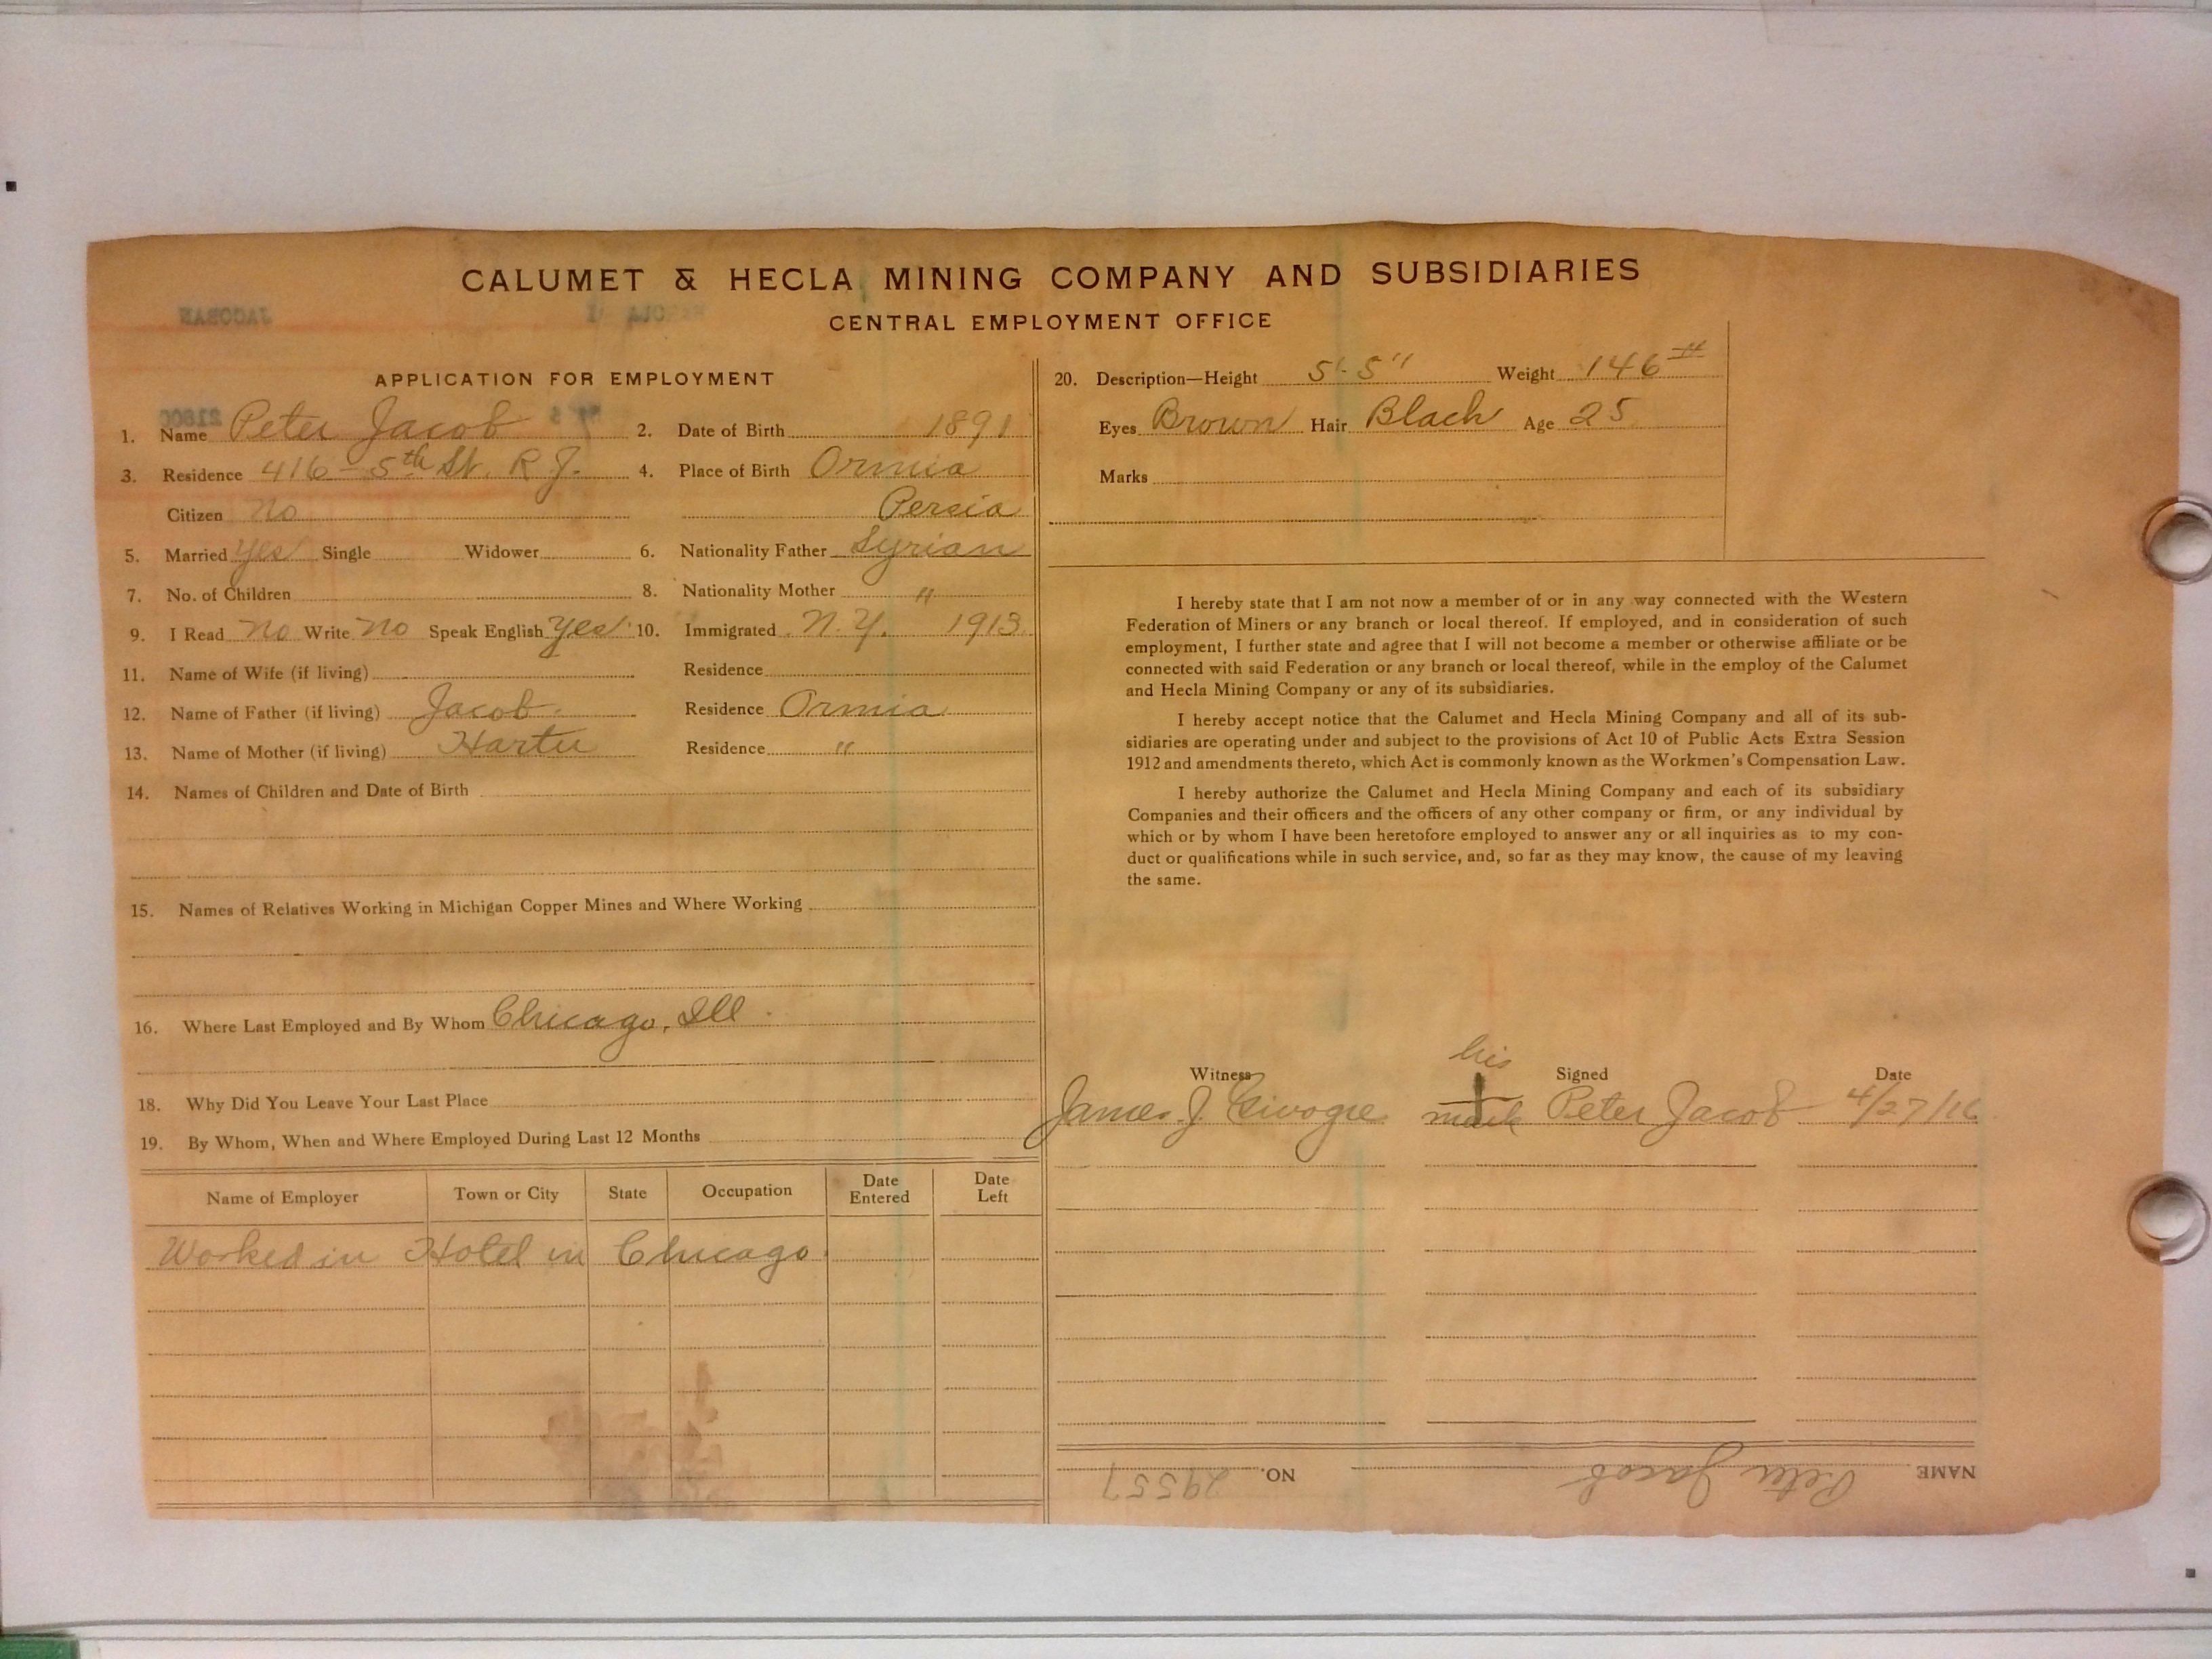 CALUMET & HECLA MINING COMPANY AND SUBSIDIARIES
CENTRAL EMPLOYMENT OFFICE
APPLICATION FOR EMPLOYMENT
1. Name Peter Jacob 2. Date of Birth 1891
3. Residence 416 - 5th St. R. J. 4. Place of Birth Ormia
Citizen No Persia
5. Married Yes Single Widower 6. Nationality Father Syrian
7. No. of Children 8. Nationality Mother "
9. I Read No Write No Speak English Yes 10. Immigrated N.Y. 1913
11. Name of Wife (if living) Residence
12. Name of Father (if living) Jacob. Residence Ormia
13. Name of Mother (if living) Residence "
14. Names of Children and Date of Birth
15. Names of Relatives Working in Michigan Copper Mines and Where Working
16. Where Last Employed and By Whom Chicago, Ill.
18. Why Did You Leave Your Last Place
19. By Whom, When and Where Employed During Last 12 Months
Name of Employer Town or City State Occupation Date Entered Date Left
Worked in Hotel in Chicago.
20. Description—Height 5'-5" Weight 146#
Eyes Brown Hair Black Age 25
Marks
I hereby state that I am not now a member of or in any way connected with the Western
Federation of Miners or any branch or local thereof. If employed, and in consideration of such
employment, I further state and agree that I will not become a member or otherwise affiliate or be
connected with said Federation or any branch or local thereof, while in the employ of the Calumet
and Hecla Mining Company or any of its subsidiaries.
I hereby accept notice that the Calumet and Hecla Mining Company and all of its sub-
sidiaries are operating under and subject to the provisions of Act 10 of Public Acts Extra Session
1912 and amendments thereto, which Act is commonly known as the Workmen's Compensation Law.
I hereby authorize the Calumet and Hecla Mining Company and each of its subsidiary
Companies and their officers and the officers of any other company or firm, or any individual by
which or by whom I have been heretofore employed to answer any or all inquiries as to my con-
duct or qualifications while in such service, and, so far as they may know, the cause of my leaving
the same.
his
Witness Signed Date
James J. mark Peter Jacob 4/27/16
NAME Peter Jacob NO. 29557